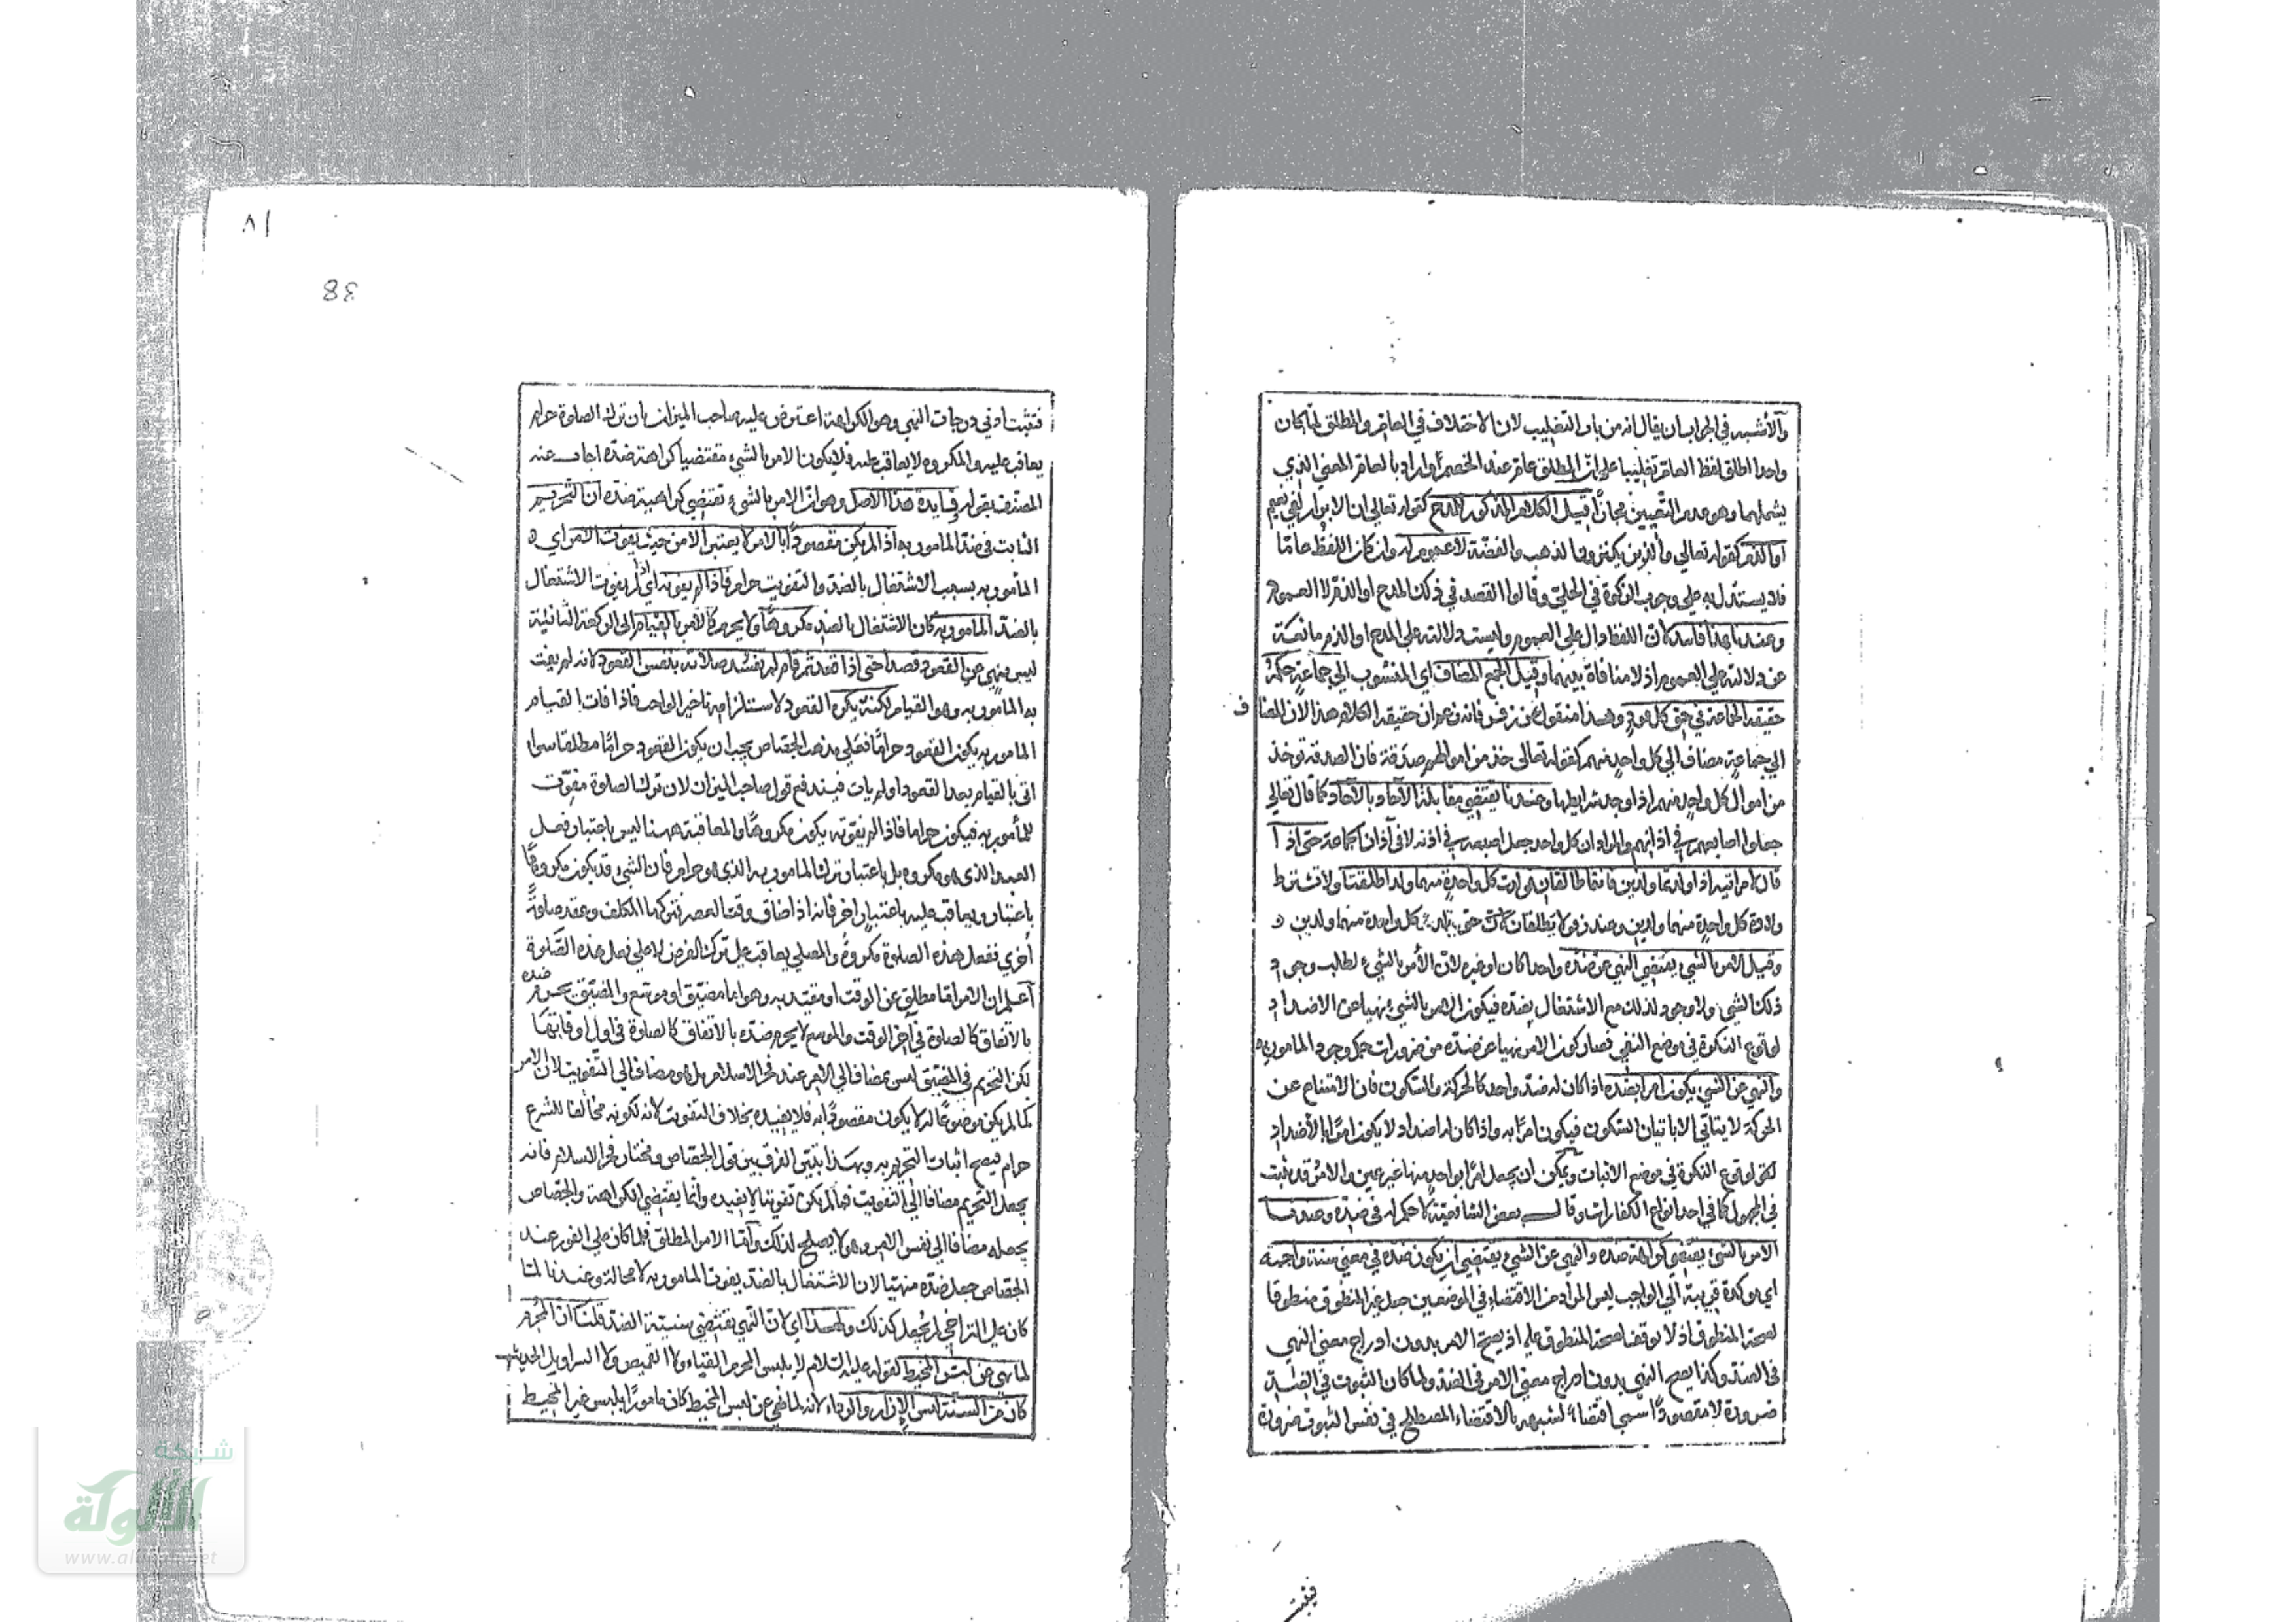 والأشبه في الجواب ان يقال انه من باب التغليب لان الاختلاف في العام والمطلق لما كان
واحدا اطلق لفظ العام تغليبا على ان المطلق عام عند الخصم او اراد بالعام المعنى الذي
يشملهما وهو عدم التعيين مجازًا وقيل الكلام المذكور للمدح كقوله تعالى ان الابرار لفي نعيم
او الذم كقوله تعالى والذين يكنزون الذهب والفضة لا عموم له وان كان اللفظ عامّا
فلا يستدل به على وجوب الزكوة في الحلي وقالوا القصد في ذلك المدح او الذم لا العموم
وعندنا هذا فاسد لان اللفظ دال على العموم وليست دلالته على المدح او الذم مانعة
عن دلالته على العموم اذ لا منافاة بينهما وقيل الجمع المضاف اي المنسوب الى جماعة حكمه
حقيقة الجماعة في حق كل فرد وهذا منقول عن زفر فانه زعم ان حقيقة الكلام هذا لان المضا ف
الى جماعة مضاف الى كل واحد منهم كقوله تعالى خذ من اموالهم صدقة فان الصدقة توخذ
من اموال كل واحد منهم اذا وجد شرايطها وعندنا يقتضي مقابلة الآحاد بالآحاد كما قال تعالى
جعلوا اصابعهم في اذانهم والمراد ان كل واحد جعل اصبعه في اذنه لا في آذان الجماعة حتى اذا
قال لامراتيه اذا ولدتما ولدين فانتما طالقان فولدت كل واحدة منهما ولدا طلقتا ولا تشترط
ولادة كل واحدة منهما ولدين وعند زفر لا يطلقان حتى تلد كل واحدة منهما ولدين
وقيل الامر بالشيء يقتضي النهي عن ضده واحدا كان او غيره لان الأمر بالشيء لطلب وجود
ذلك الشيء ولا وجود لذلك مع الاشتغال بضده فيكون الامر بالشيء نهيا عن الاضداد
لوقوع النكرة في موضع النفي فصار كون الامر نهيا عن ضده من ضرورات حكم وجود المامور به
والنهي عن الشيء يكون امرا بضده اذا كان له ضد واحد كالحركة والسكون فان الامتناع عن
الحركة لا يتاتى الا باتيان السكون فيكون امرًا به واذا كان له اضداد لا يكون امرًا بالأضداد
لوقوع النكرة في موضع الاثبات ويمكن ان يجعل امرًا بواحد منها غير عين والامر قد يثبت
في المجهول كما في احد انواع الكفارات وقال بعض الشافعية لا حكم له في ضده وعندنا
الامر بالشيء يقتضي كراهة ضده والنهي عن الشيء يقتضي ان يكون ضده في معنى سنة واجبة
اي موكدة قريبة الى الواجب ليس المراد من الاقتضاء في الموضعين جعل غير المنطوق منطوقا
لصحة المنطوق اذ لا توقف لصحة المنطوق عليه اذ يصح الامر بدون ادراج معنى النهي
في الضد وكذا يصح النهي بدون ادراج معنى الامر في الضد ولما كان الثبوت في الضد
ضرورة لا مقصودًا سمي اقتضاء لشبهه بالاقتضاء المصطلح في نفس الثبوت ضرورة
فيثبت
٨١
38
فتثبت ادنى درجات النهي وهو الكراهة اعترض عليه صاحب الميزان بان ترك الصلوة حرام
يعاقب عليه والمكروه لا يعاقب عليه فلا يكون الامر بالشيء مقتضيا كراهة ضده اجاب عنه
المصنف بقوله وفايدة هذا الاصل وهو ان الامر بالشيء تقتضي كراهية ضده ان التحريم
الثابت في ضد المامور به اذا لم يكن مقصودًا بالامر لا يعتبر الا من حيث يفوت الامر اي
المأمور به بسبب الاشتغال بالضد والتفويت حرام فاذا لم يفوته اي اذا لم يفوت الاشتغال
بالضد المامور به كان الاشتغال بالضد مكروهًا ولا يحرم كالامر بالقيام الى الركعة الثانية
ليس بنهي عن القعود قصدا حتى اذا قعد ثم قام لم تفسد صلاته بنفس القعود لانه لم يفت
به المامور به وهو القيام لكنه يكره القعود لاستلزامه تاخير الواجب فاذا فات القيام
المامور به يكون القعود حرامًا فعلى مذهب الجصاص يجب ان يكون القعود حرامًا مطلقا سواء
اتى بالقيام بعد القعود او لم يات فيندفع قول صاحب الميزان لان ترك الصلوة مفوّت
للمأمور به فيكون حراما فاذا لم يفوته يكون مكروهًا والمعاقبة ههنا ليس باعتبار فعل
العبد الذي هو مكروه بل باعتبار ترك المامور به الذي هو حرام فان الشيء قد يكون مكروهًا
باعتبار ويعاقب عليه باعتبار اخر فانه اذا ضاق وقت العصر فتركها المكلف وعقد صلوةً
أخرى ففعل هذه الصلوة مكروهٌ والمصلي يعاقب على ترك الفرض لا على فعل هذه الصلوة
اعلم ان الامر اما مطلق عن الوقت او مقيد به وهو اما مضيّق او موسّع والمضيق يحرم ضده
بالاتفاق كالصلوة في آخر الوقت والموسع لا يحرم ضده بالاتفاق كالصلوة في اول اوقاتها
لكن التحريم في المضيق ليس بمضاف الى الامر عند فخر الاسلام بل هو مضاف الى التفويت لان الامر
لما لم يكن موضوعًا له لا يكون مقصودًا به فلا يفيده بخلاف التفويت لانه لكونه مخالفا للشرع
حرام فيصح اثبات التحريم به وبهذا يتبين الفرق بين قول الجصاص ومختار فخر الاسلام فانه
يجعل التحريم مضافا الى التفويت فما لم يكن تفويتا لا يفيده وانما يقتضي الكراهة والجصاص
يجعله مضافا الى نفس الامر وهو لا يصلح لذلك وامّا الامر المطلق فلما كان على الفور عند
الجصاص جعل ضده منهيا لان الاشتغال بالضد يفوت المامور به لا محالة وعندنا لمّا
كان على التراخي لم يجعل كذلك ولهذا اي لان النهي يقتضي سنيّة الضد قلنا ان المحرم
لما نهي عن لبس المخيط لقوله عليه السلام لا يلبس المحرم القباء ولا القميص ولا السراويل الحديث
كان من السنة لبس الازار والرداء لانه لما نهي عن لبس المخيط كان مامورًا بلبس غير المخيط
شبكة
الألوكة
www.alukah.net